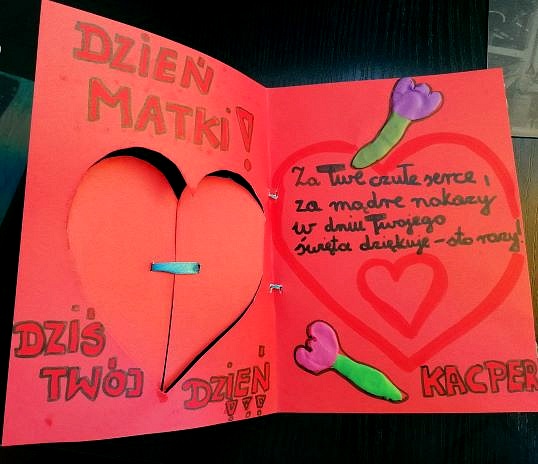 DZIEŃ
MATKI!
DZIŚ
TWÓJ
DZIEŃ!!!
Za Twe czułe serce,
za mądre nakazy
w dniu Twojego
święta dziękuję – sto razy!
KACPER